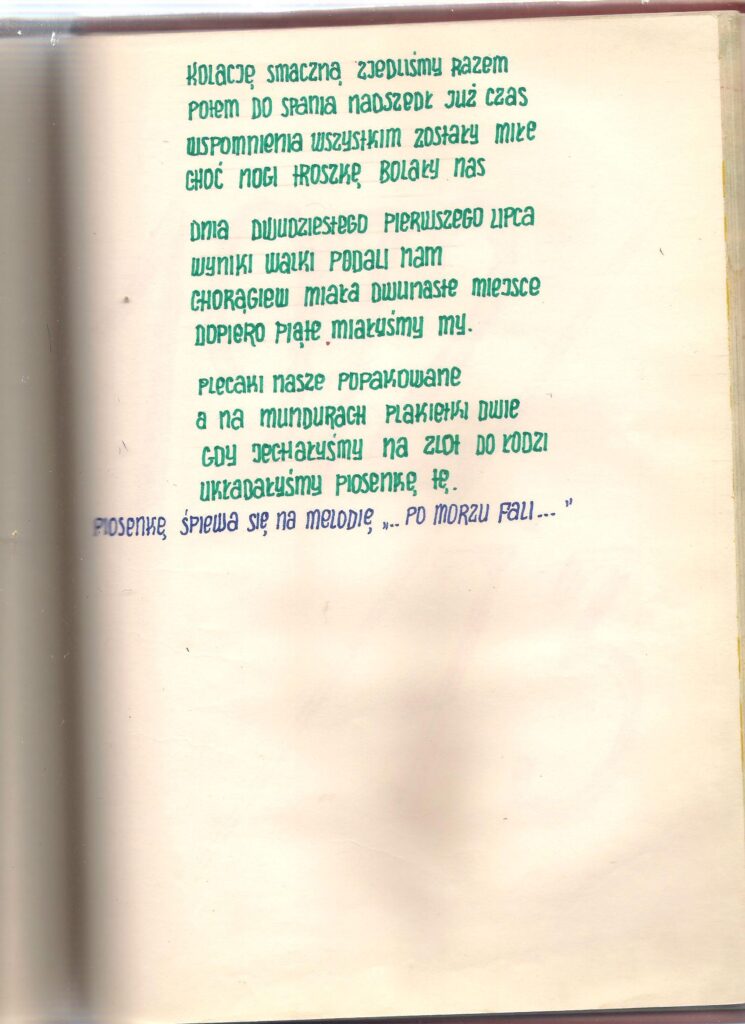 KOLACJĘ SMACZNĄ ZJEDLIŚMY RAZEM
POTEM DO SPANIA NADSZEDŁ JUŻ CZAS
WSPOMNIENIA WSZYSTKIM ZOSTAŁY MIŁE
CHOĆ NOGI TROSZKĘ BOLAŁY NAS
DNIA DWUDZIESTEGO PIERWSZEGO LIPCA
WYNIKI WALKI PODALI NAM
CHORĄGIEW MIAŁA DWUNASTE MIEJSCE
DOPIERO PIĄTE MIAŁYŚMY MY.
PLECAKI NASZE POPAKOWANE
A NA MUNDURACH PLAKIETKI DWIE
GDY JECHAŁYŚMY NA ZLOT DO ŁODZI
UKŁADAŁYŚMY PIOSENKĘ TĘ.
PIOSENKĘ ŚPIEWA SIĘ NA MELODIĘ „.. PO MORZU FALI... "